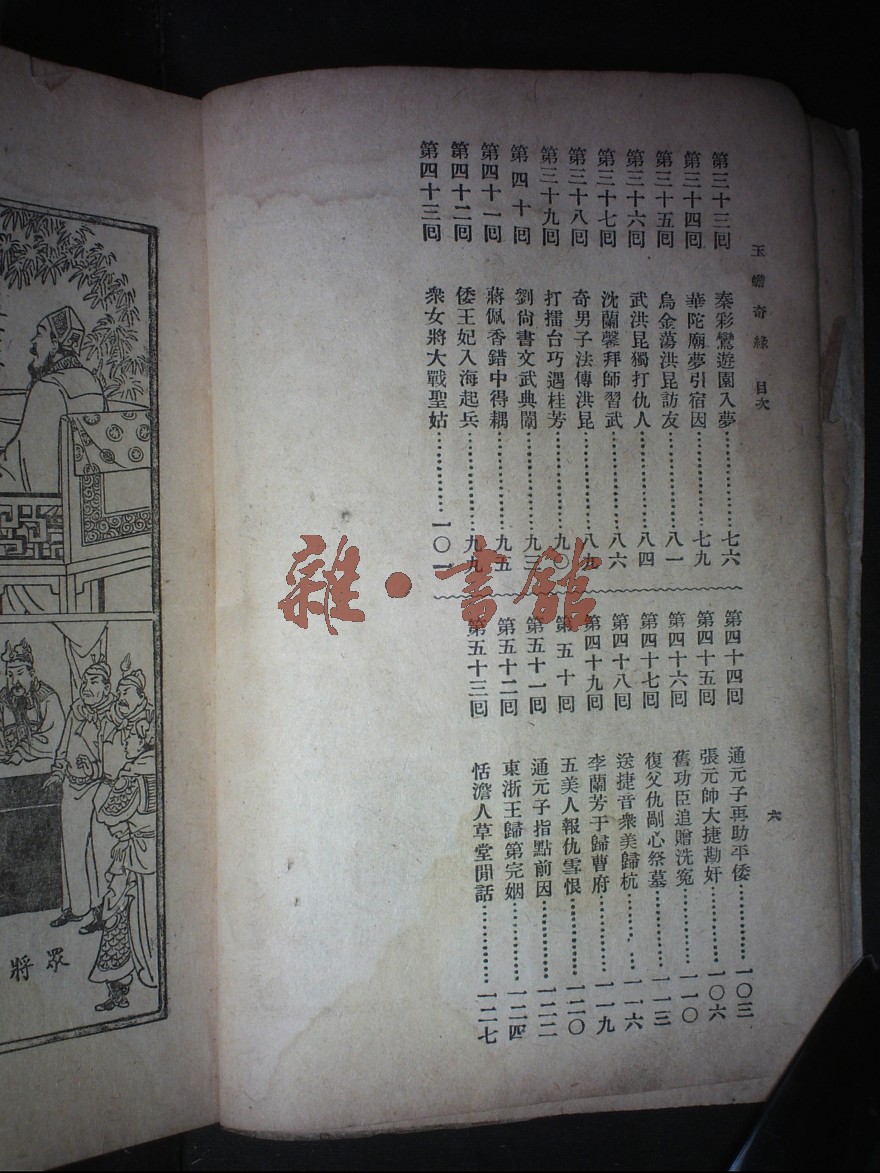 玉蟾奇緣 目次
第三十三回 秦彩鸞遊園入夢……七六
第三十四回 華陀廟夢引宿因……七九
第三十五回 烏金蕩洪昆訪友……八一
第三十六回 武洪昆獨打仇人……八四
第三十七回 沈蘭馨拜師習武……八六
第三十八回 奇男子法傳洪昆……八九
第三十九回 打擂台巧遇桂芳……九〇
第四十回 劉尚書文武典闈……九三
第四十一回 蔣佩香錯中得耦……九五
第四十二回 倭王妃入海起兵……九九
第四十三回 衆女將大戰聖姑……一〇一
第四十四回 通元子再助平倭……一〇三
第四十五回 張元帥大捷勘奸……一〇六
第四十六回 舊功臣追贈洗冤……一一〇
第四十七回 復父仇剮心祭墓……一一三
第四十八回 送捷音衆美歸杭……一一六
第四十九回 李蘭芳于歸曹府……一一九
第五十回 五美人報仇雪恨……一二〇
第五十一回 通元子指點前因……一二二
第五十二回 東浙王歸第完姻……一二四
第五十三回 恬澹人草堂閒話……一二七
六
衆將
雜·書館